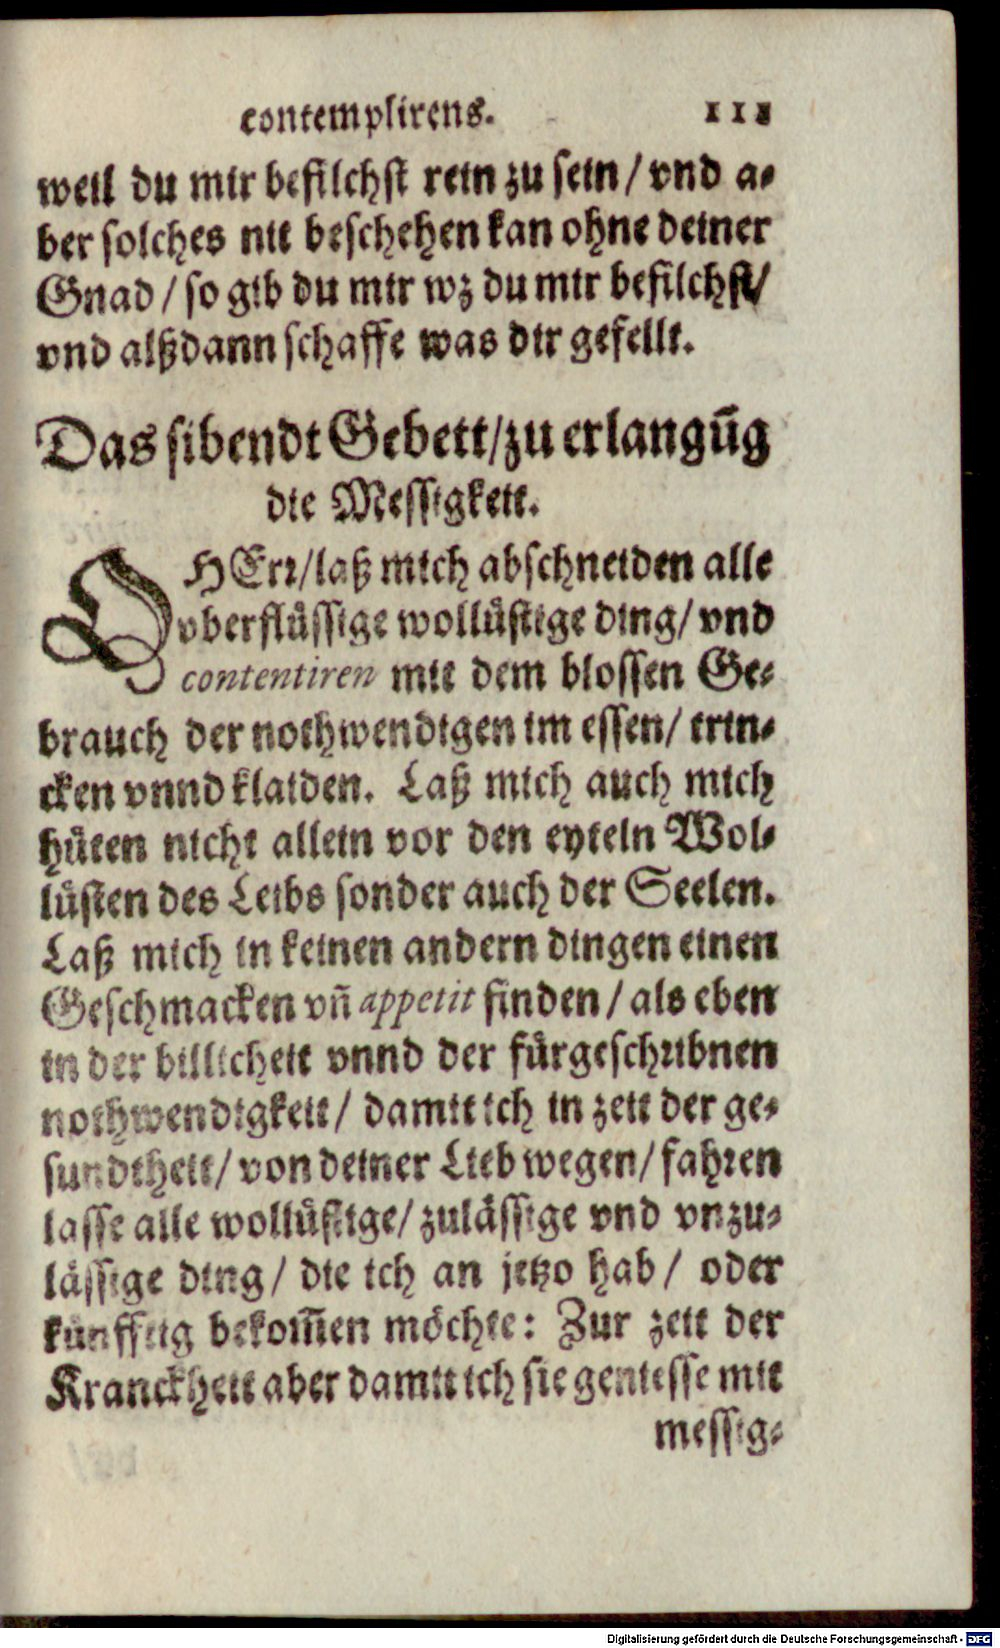 contemplirens. 111
weil du mir befilchst rein zu sein / vnd a-
ber solches nit beschehen kan ohne deiner
Gnad / so gib du mir wz du mir befilchst/
vnd alßdann schaffe was dir gefellt.
Das sibendt Gebett/zu erlangūg
die Messigkeit.
O HErr/laß mich abschneiden alle
vberflüssige wollüstige ding/ vnd
contentiren mit dem blossen Ge-
brauch der nothwendigen im essen/ trin-
cken vnnd klaiden. Laß mich auch mich
hüten nicht allein vor den eyteln Wol-
lüsten des Leibs sonder auch der Seelen.
Laß mich in keinen andern dingen einen
Geschmacken vñ appetit finden / als eben
in der billicheit vnnd der fürgeschribnen
nothwendigkeit/ damit ich in zeit der ge-
sundtheit/ von deiner Lieb wegen/ fahren
lasse alle wollüstige/ zulässige vnd vnzu-
lässige ding/ die ich an jetzo hab / oder
künfftig bekom̄en möchte: Zur zeit der
Kranckheit aber damit ich sie geniesse mit
messig-
Digitalisierung gefördert durch die Deutsche Forschungsgemeinschaft - DFG